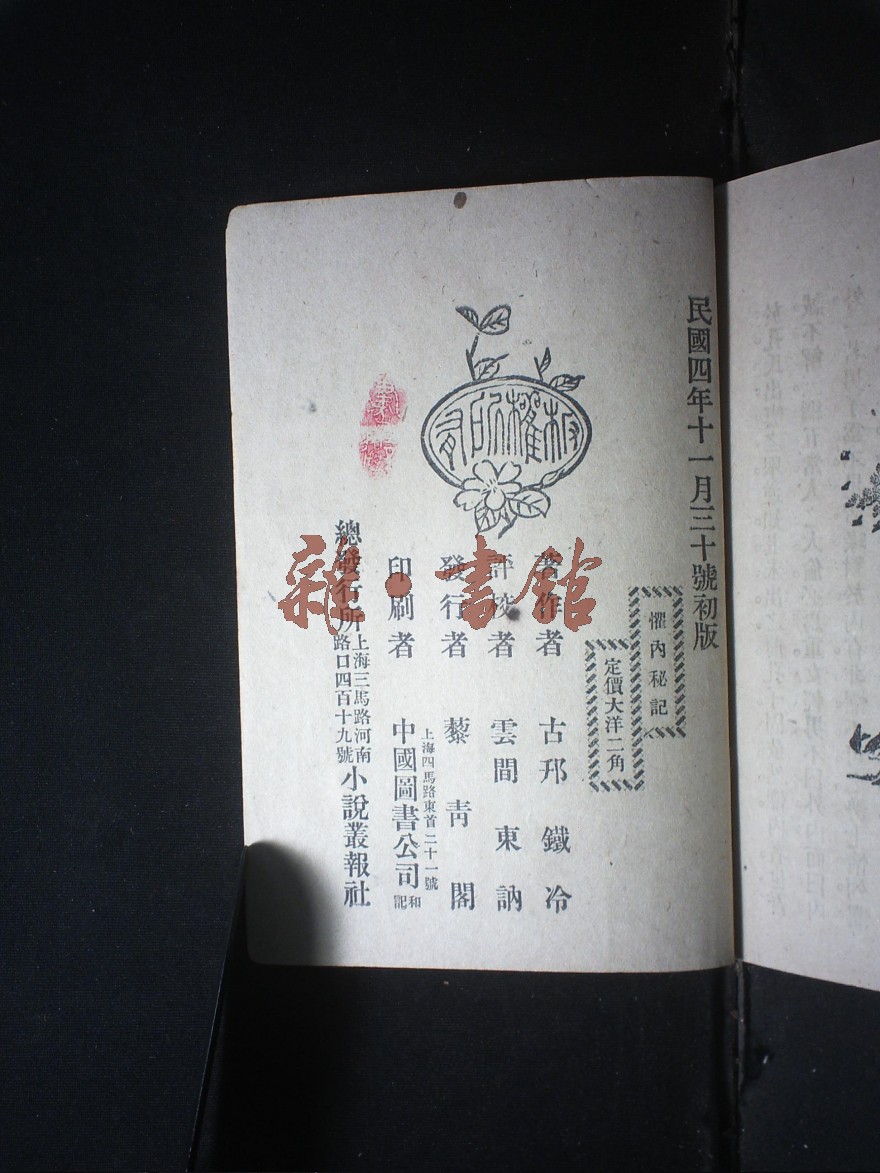 民國四年十一月三十號初版
懼內秘記
定價大洋二角
版權所有
著作者 古邗鐵冷
評校者 雲間東訥
發行者 藜青閣
上海四馬路東首二十一號
印刷者 中國圖書公司和記
總發行所 上海三馬路河南路口四百十九號 小說叢報社
雜·書館